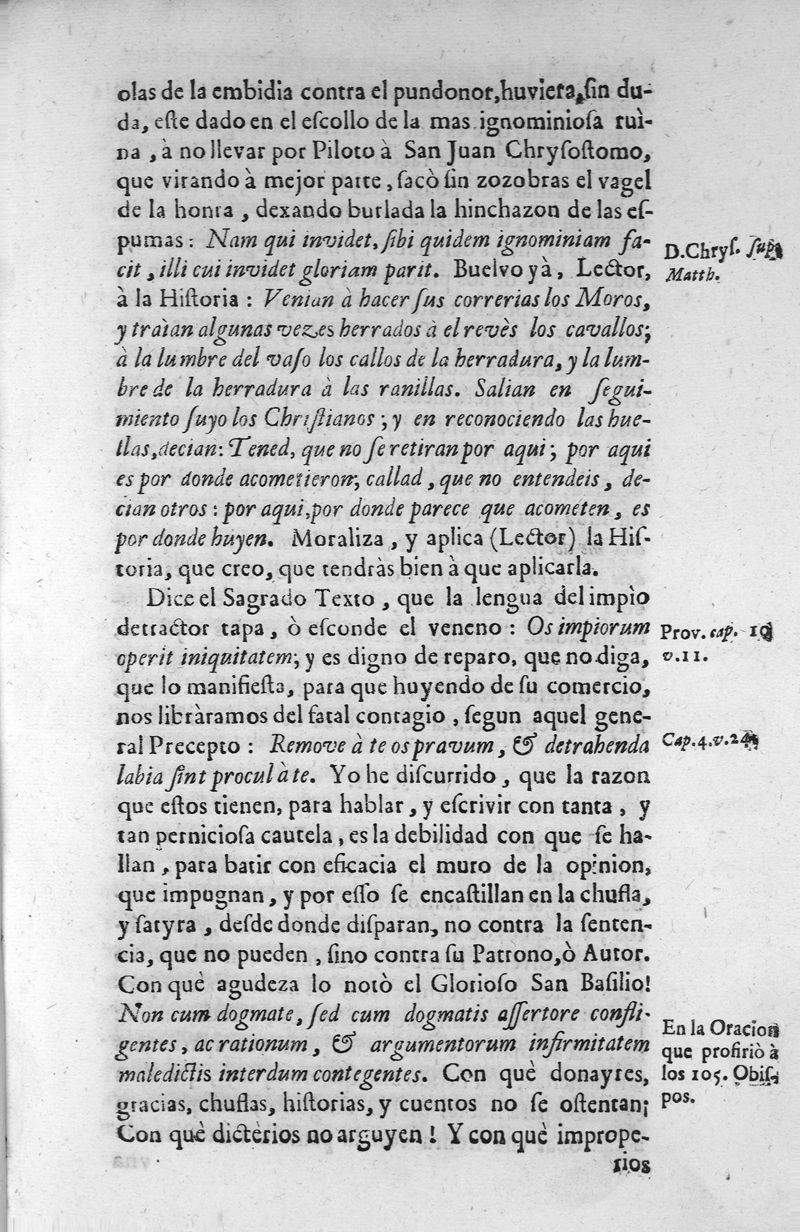 olas de la embidia contra el pundonor, huviera, ſin du-
da, eſte dado en el eſcollo de la mas ignominioſa rui-
na, à no llevar por Piloto à San Juan Chryſoſtomo,
que virando à mejor parte, ſacò ſin zozobras el vagel
de la honra, dexando burlada la hinchazon de las eſ-
pumas: Nam qui invidet, ſibi quidem ignominiam fa-
cit, illi cui invidet gloriam parit. Buelvo yà, Lector,
à la Hiſtoria: Venian à hacer ſus correrias los Moros,
y traìan algunas vezes herrados à el revès los cavallos;
à la lumbre del vaſo los callos de la herradura, y la lum-
bre de la herradura à las ranillas. Salian en ſegui-
miento ſuyo los Chriſtianos; y en reconociendo las hue-
llas, decian: Tened, que no ſe retiran por aqui; por aqui
es por donde acometieron; callad, que no entendeis, de-
cian otros: por aqui, por donde parece que acometen, es
por donde huyen. Moraliza, y aplica (Lector) la Hiſ-
toria, que creo, que tendràs bien à que aplicarla.
Dice el Sagrado Texto, que la lengua del impìo
detractor tapa, ò eſconde el veneno: Os impiorum
operit iniquitatem; y es digno de reparo, que no diga,
que lo manifieſta, para que huyendo de ſu comercio,
nos libràramos del fatal contagio, ſegun aquel gene-
ral Precepto: Remove à te os pravum, & detrahenda
labia ſint procul à te. Yo he diſcurrido, que la razon
que eſtos tienen, para hablar, y eſcrivir con tanta, y
tan pernicioſa cautela, es la debilidad con que ſe ha-
llan, para batir con eficacia el muro de la opinion,
que impugnan, y por eſſo ſe encaſtillan en la chufla,
y ſatyra, deſde donde diſparan, no contra la ſenten-
cia, que no pueden, ſino contra ſu Patrono, ò Autor.
Con què agudeza lo notò el Glorioſo San Baſilio!
Non cum dogmate, ſed cum dogmatis aſſertore confli-
gentes, ac rationum, & argumentorum infirmitatem
maledictis interdum contegentes. Con què donayres,
gracias, chuflas, hiſtorias, y cuentos no ſe oſtentan;
Con què dictèrios no arguyen! Y con què imprope-
rios
D. Chryſ. ſup.
Matth.
Prov. cap. 10
v. 11.
Cap. 4. v. 24
En la Oracion
que profiriò à
los 105. Obiſ-
pos.